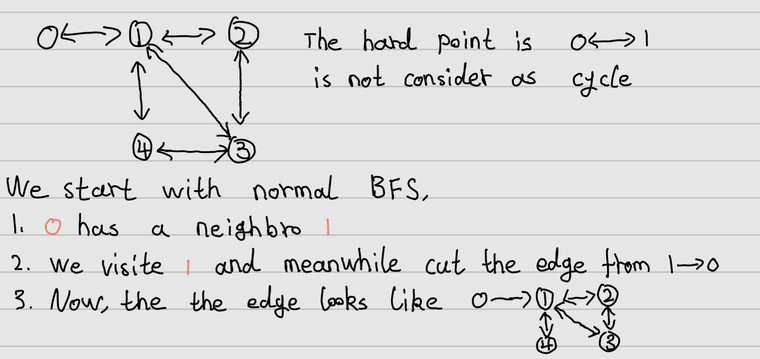 0 ↔ 1 ↔ 2 The hard point is 0↔1
is not consider as cycle
4 ↔ 3
We start with normal BFS,
1. 0 has a neighbro 1
2. we visite 1 and meanwhile cut the edge from 1→0
3. Now, the the edge looks like 0→1↔2
4 3